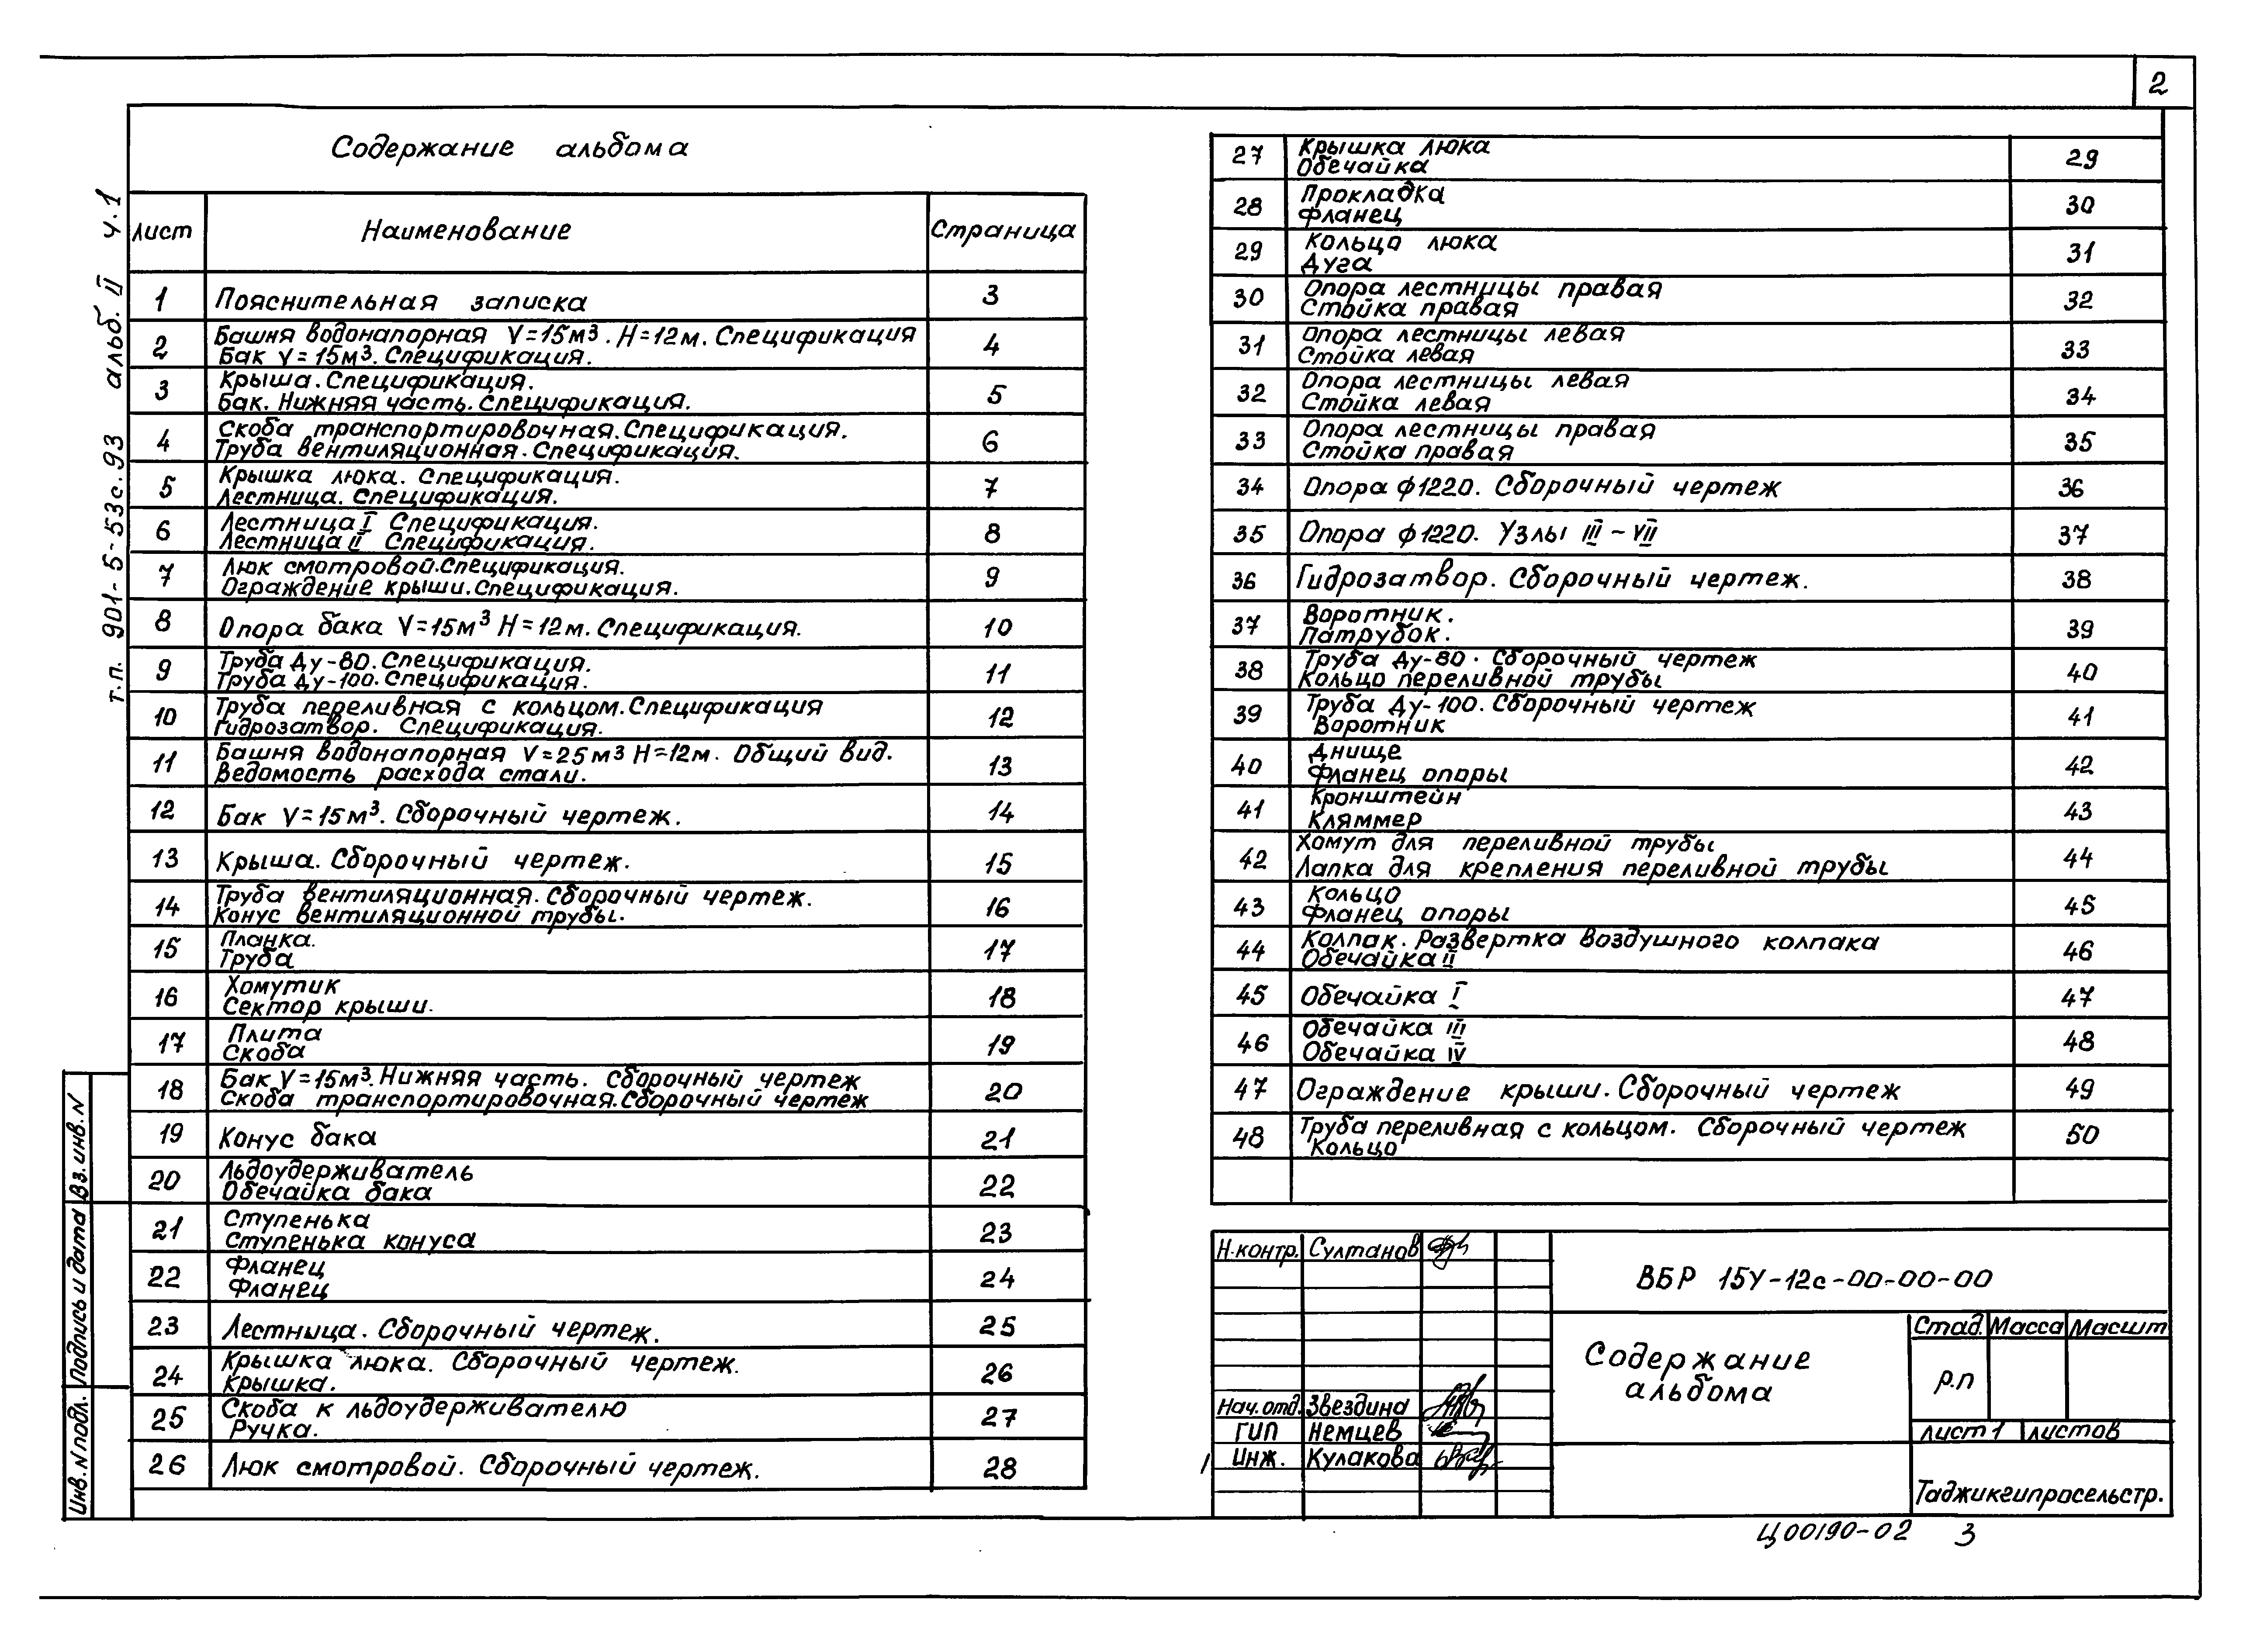 2
Содержание альбома
Лист Наименование Страница
1 Пояснительная записка 3
2 Башня водонапорная V=15м³. H=12м. Спецификация 4
Бак V=15м³. Спецификация.
3 Крыша. Спецификация. 5
Бак. Нижняя часть. Спецификация.
4 Скоба транспортировочная. Спецификация. 6
Труба вентиляционная. Спецификация.
5 Крышка люка. Спецификация. 7
Лестница. Спецификация.
6 Лестница I Спецификация. 8
Лестница II Спецификация.
7 Люк смотровой. Спецификация. 9
Ограждение крыши. Спецификация.
8 Опора бака V=15м³ H=12м. Спецификация. 10
9 Труба Ду-80. Спецификация. 11
Труба Ду-100. Спецификация.
10 Труба переливная с кольцом. Спецификация 12
Гидрозатвор. Спецификация.
11 Башня водонапорная V=25м³ H=12м. Общий вид. 13
Ведомость расхода стали.
12 Бак V=15м³. Сборочный чертеж. 14
13 Крыша. Сборочный чертеж. 15
14 Труба вентиляционная. Сборочный чертеж. 16
Конус вентиляционной трубы.
15 Планка. 17
Труба
16 Хомутик 18
Сектор крыши.
17 Плита 19
Скоба
18 Бак V=15м³. Нижняя часть. Сборочный чертеж 20
Скоба транспортировочная. Сборочный чертеж
19 Конус бака 21
20 Льдоудерживатель 22
Обечайка бака
21 Ступенька 23
Ступенька конуса
22 Фланец 24
Фланец
23 Лестница. Сборочный чертеж. 25
24 Крышка люка. Сборочный чертеж. 26
Крышка.
25 Скоба к льдоудерживателю 27
Ручка.
26 Люк смотровой. Сборочный чертеж. 28
27 Крышка люка 29
Обечайка
28 Прокладка 30
Фланец
29 Кольцо люка 31
Дуга
30 Опора лестницы правая 32
Стойка правая
31 Опора лестницы левая 33
Стойка левая
32 Опора лестницы левая 34
Стойка левая
33 Опора лестницы правая 35
Стойка правая
34 Опора ф1220. Сборочный чертеж 36
35 Опора ф1220. Узлы III ~ VII 37
36 Гидрозатвор. Сборочный чертеж. 38
37 Воротник. 39
Патрубок.
38 Труба Ду-80. Сборочный чертеж 40
Кольцо переливной трубы
39 Труба Ду-100. Сборочный чертеж 41
Воротник
40 Днище 42
Фланец опоры
41 Кронштейн 43
Кляммер
42 Хомут для переливной трубы 44
Лапка для крепления переливной трубы
43 Кольцо 45
Фланец опоры
44 Колпак. Развертка воздушного колпака 46
Обечайка II
45 Обечайка I 47
46 Обечайка III 48
Обечайка IV
47 Ограждение крыши. Сборочный чертеж 49
48 Труба переливная с кольцом. Сборочный чертеж 50
Кольцо
Н.контр. Султанов
ВБР 15У-12с-00-00-00
Содержание
альбома
Стад. Масса Масшт
р.п
Нач. отд. Звездина
ГИП Немцев
Инж. Кулакова
лист 1 листов
Таджикгипросельстр.
Ц00190-02 3
т.п. 901-5-53с.93 альб. II ч.1
Вз. инв. N
Подпись и дата
Инв. N подл.